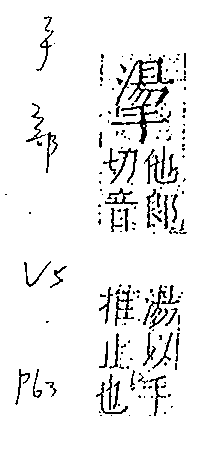 他郎
切音
湯以手
推止也
手部 . V5 . P63